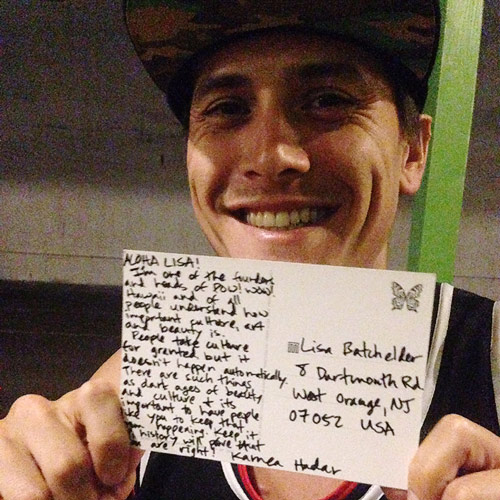 ALOHA LISA!
I'm one of the founders
and heads of POW! WOW!
Hawaii and of all
people understand how
important culture, art
and beauty is.
People take culture
for granted but it
doesn't happen automatically.
There are such things
as dark ages of beauty
and culture + its
important to have people
like you to keep that
from happening. Keep it
history will prove that
you are right! Kamea Hadar
Lisa Batchelder
8 Dartmouth Rd.
West Orange, NJ
07052 USA